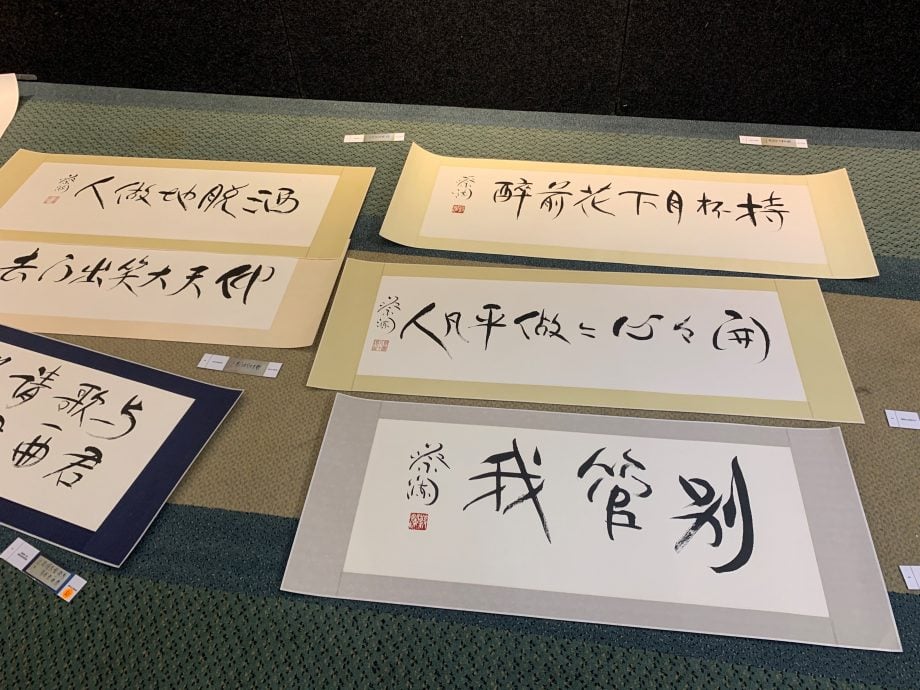 持杯月下花前醉
蔡澜
開々心々做平凡人
蔡澜
别管我
蔡澜
洒脱地做人
蔡澜
仰天大笑出门去
与君
歌一曲
请